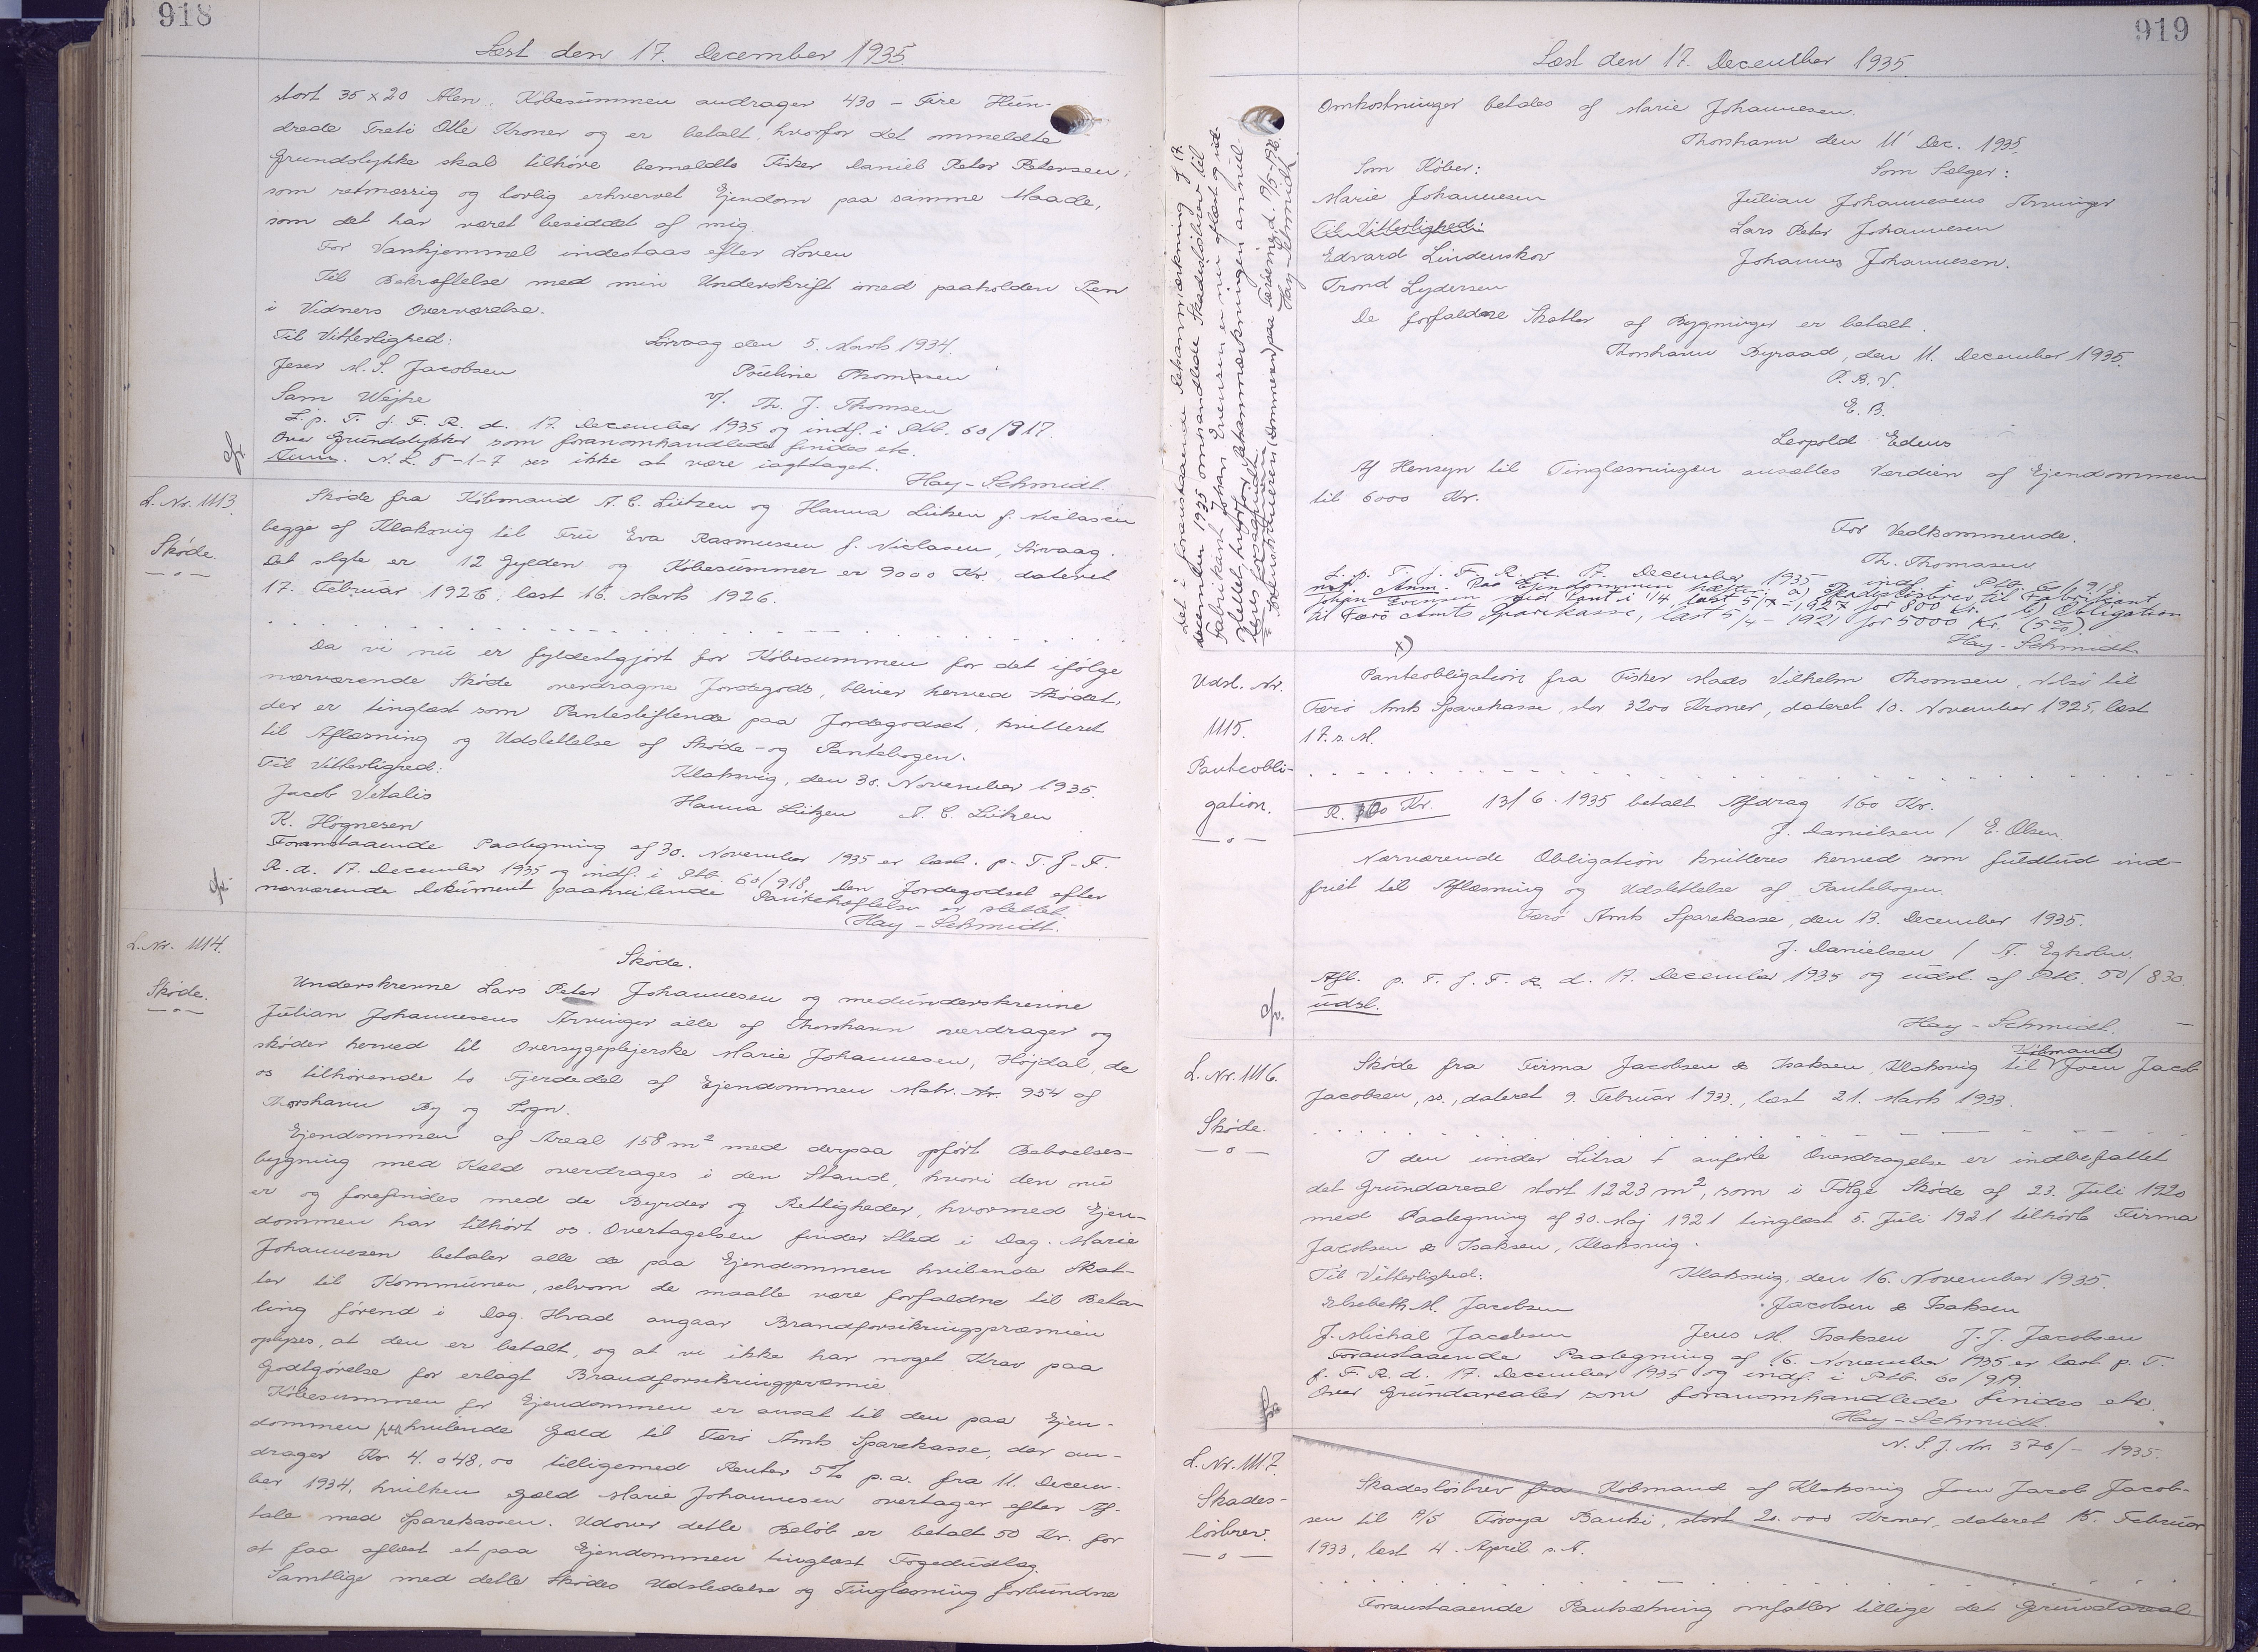 918
Læst den 17. December 1935.
stort 35 x 20 Alen. Købesummen andrager 430 - Fire Hun-
drede Treti Otte Kroner og er betalt, hvorfor det ommeldte
Grundstykke skal tilhøre bemeldte Fisker Daniel Peter Petersen,
som retmæssig og lovlig erhvervet Ejendom paa samme Maade,
som det har været besiddet af mig.
For Vanhjemmel indestaas efter Loven
Til Bekræftelse med min Underskrift med paaholden Pen
i Vidners Overværelse.
Til Vitterlighed:
Sørvaag den 5. Marts 1934.
M. S. Jacobsen
Pouline Thomsen
Sam Wejhe
v/ Th. J. Thomsen
L. p. T. f. F. R. d. 17. December 1935 og indf. i Ptb. 60/917.
Over Grundstykker som foranomhandlede findes etc.
Anm. N. L. 5-1-7 ses ikke at være iagttaget.
Hay-Schmidt.
L. Nr. 1113.
Skøde.
Skøde fra Købmand A. C. Lützen og Hanna Lützen f. Niclasen
begge af Klaksvig til Fru Eva Rasmussen f. Niclasen, Sørvaag.
Det solgte er 12 Gylden og Købesummen er 9000 Kr., dateret
17. Februar 1926, læst 16. Marts 1926.
Da vi nu er fyldestgjort for Købesummen for det ifølge
nærværende Skøde overdragne Jordegods, bliver herved Skødet,
der er tinglæst som Pantestiftende paa Jordegodset, kvitteret
til Aflæsning og Udslettelse af Skøde- og Pantebogen.
Til Vitterlighed:
Klaksvig, den 30. November 1935.
Jacob Vitalis
Hanna Lützen A. C. Lützen
K. Høgnesen
Foranstaaende Paategning af 30. November 1935 er læst. p. T. f. F.
R. d. 17. December 1935 og indf. i Ptb. 60/918. Den Jordegodset efter
nærværende Dokument paahvilende Pantehæftelse er slettet.
Hay-Schmidt.
L. Nr. 1114.
Skøde.
Skøde.
Underskrevne Lars Peter Johannesen og medunderskrevne
Julian Johannesens Arvinger alle af Thorshavn overdrager og
skøder herved til Oversygeplejerske Marie Johannesen, Højdal, de
os tilhørende to Fjerdedel af Ejendommen Matr. Nr. 954 af
Thorshavn By og Sogn.
Ejendommen af Areal 158 m2 med derpaa opført Beboelses-
bygning med Kæld overdrages i den Stand, hvori den nu
er og forefindes med de Byrder og Rettigheder, hvormed Ejen-
dommen har tilhørt os. Overtagelsen finder Sted i Dag. Marie
Johannesen betaler alle de paa Ejendommen hvilende Skat-
ter til Kommunen, selvom de maatte være forfaldne til Beta-
ling førend i Dag. Hvad angaar Brandforsikringspræmien
oplyses, at den er betalt, og at vi ikke har noget Krav paa
Godtgørelse for erlagt Brandforsikringspræmie.
Købesummen for Ejendommen er ansat til den paa Ejen-
dommen paahvilende Gæld til Færø Amts Sparekasse, der an-
drager Kr. 4.048,00 tilligemed Renter 5% p.a. fra 11. Decem-
ber 1934, hvilken Gæld Marie Johannesen overtager efter Af-
tale med Sparekassen. Udover dette Beløb er betalt 50 Kr. for
at faa aflæst et paa Ejendommen tinglæst Fogedudlæg.
Samtlige med dette Skødes Udstedelse og Tinglæsning forbundne
919
Læst den 17. December 1935.
Omkostninger betales af Marie Johannesen.
Thorshavn den 11' Dec. 1935.
Som Køber:
Som Sælger:
Marie Johannesen
Julian Johannesens Arvinger
Til Vitterlighed:
Lars Peter Johannesen
Edvard Lindenskov
Johannes Johannesen.
Trond Lydersen
De forfaldne Skatter af Bygninger er betalt.
Thorshavn Byraad, den 11. December 1935.
P. B. V.
E. B.
Leopold
Af Hensyn til Tinglæsningen ansættes Værdien af Ejendommen
til 6000 Kr.
For Vedkommende.
Th. Thomasen
L. p. T. f. F. R. d. 17. December 1935 indf. i Ptb. 60/918.
Anm. Paa Ejendommen hæfter: a) Skadesløsbrev til Fabrikant
Johan Evensen med Pant i 1/4, læst 5/7-1927 for 800 Kr. b) Obligation
til Færø Amts Sparekasse, læst 5/4-1921 for 5000 Kr. (5%).
Hay-Schmidt.
x)
Det i foranstaaende Retsanmærkning af 17.
december 1935 omhandlede Skadesløsbrev til
Fabrikant Johan Evensen er nu aflæst og ud-
slettet, hvorfor Retsanmærkningen annul-
leres forsaavidt.
Hay-Schmidt.
Udsl. Nr.
1115.
Panteobli-
gation.
Panteobligation fra Fisker Mads Vilhelm Thomsen, Nolsø til
Færø Amts Sparekasse, stor 3200 Kroner, dateret 10. November 1925, læst
17. s. M.
13/6. 1935 betalt Afdrag 160 Kr.
J. Danielsen / E. Olsen.
Nærværende Obligation kvitteres herved som fuldtud ind-
friet til Aflæsning og Udslettelse af Pantebogen.
Færø Amts Sparekasse, den 13. December 1935.
J. Danielsen / A. Egholm.
Afl. p. T. f. F. R. d. 17. December 1935 og udsl. af Ptb. 50/830.
udsl.
Hay-Schmidt.
L. Nr. 1116.
Skøde.
Købmand
Skøde fra Firma Jacobsen & Isaksen, Klaksvig til Joen Jacob
Jacobsen, ss., dateret 9. Februar 1933, læst 21. Marts 1933.
I den under Litra f anførte Overdragelse er indbefattet
det Grundareal stort 1223 m2, som i Følge Skøde af 23. Juli 1920
med Paategning af 30. Maj 1921 tinglæst 5. Juli 1921 tilhørte Firma
Jacobsen & Isaksen, Klaksvig.
Til Vitterlighed:
Klaksvig, den 16. November 1935.
Elsebeth M. Jacobsen
Jacobsen & Isaksen
J. Michal Jacobsen
Jens M. Isaksen J. J. Jacobsen
Foranstaaende Paategning af 16. November 1935 er læst p. T.
f. F. R. d. 17. December 1935 og indf. i Ptb. 60/919.
Over Grundarealer som foranomhandlede findes etc.
Hay-Schmidt.
L. Nr. 1117.
Skades-
løsbrev.
N. S. J. Nr. 376/- 1935.
Skadesløsbrev fra Købmand af Klaksvig Joen Jacob Jacob-
sen til A/S Føroya Banki, stort 20.000 Kroner, dateret 15. Februar
1933, læst 4. April s. A.
Foranstaaende Pantsætning omfatter tillige det Grundareal